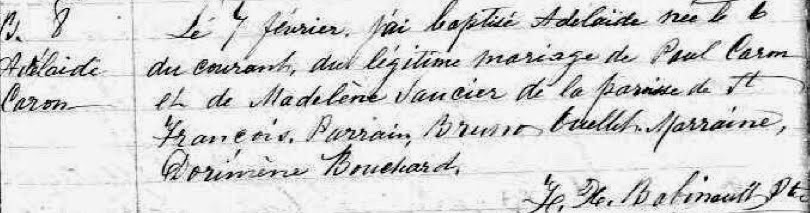 B. 8
Adélaide
Caron
Le 7 février. j'ai baptisé Adelaïde née le 6
du courant, du légitime mariage de Paul Caron
et de Madelène Saucier de la paroisse de St
François. Parrain, Bruno Ouellet. Marraine,
Dorimène Bouchard.
H. Babineault Ptr.